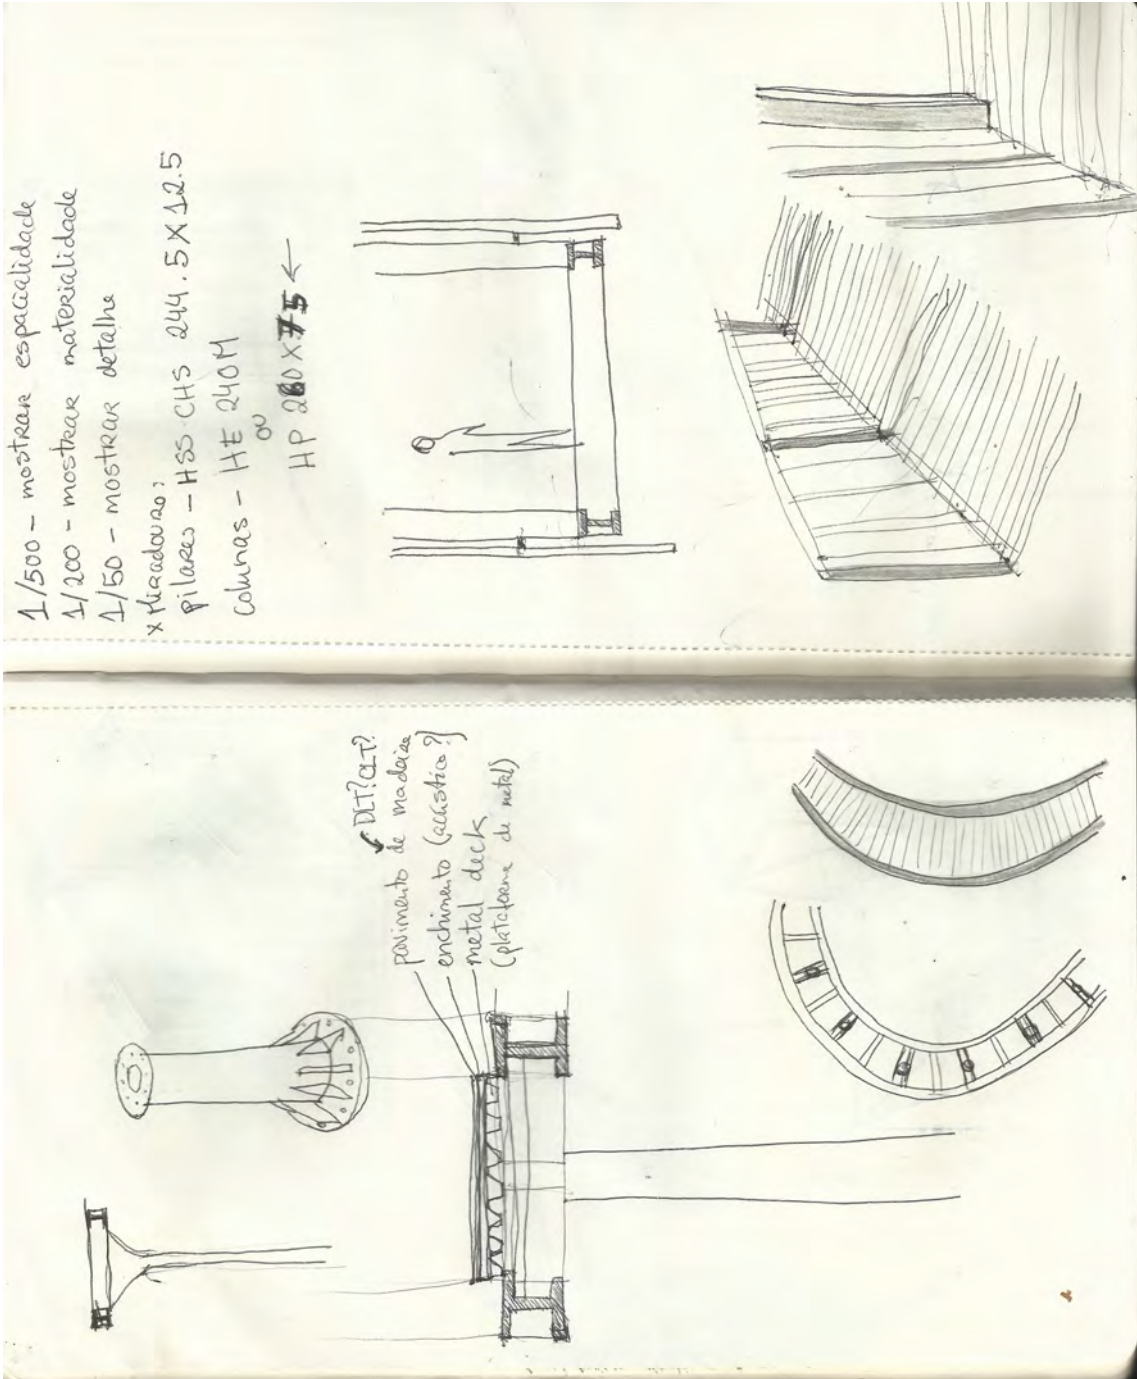 1/500 - mostrar espacialidade
1/200 - mostrar materialidade
1/50 - mostrar detalhe
x Miradouro:
pilares - HSS-CHS 244.5X12.5
Colunas - HE 240M
ou
HP 260X75 ←
DLT? CLT?
pavimento de madeira
enchimento (acústico?)
metal deck
(plataforma de metal)